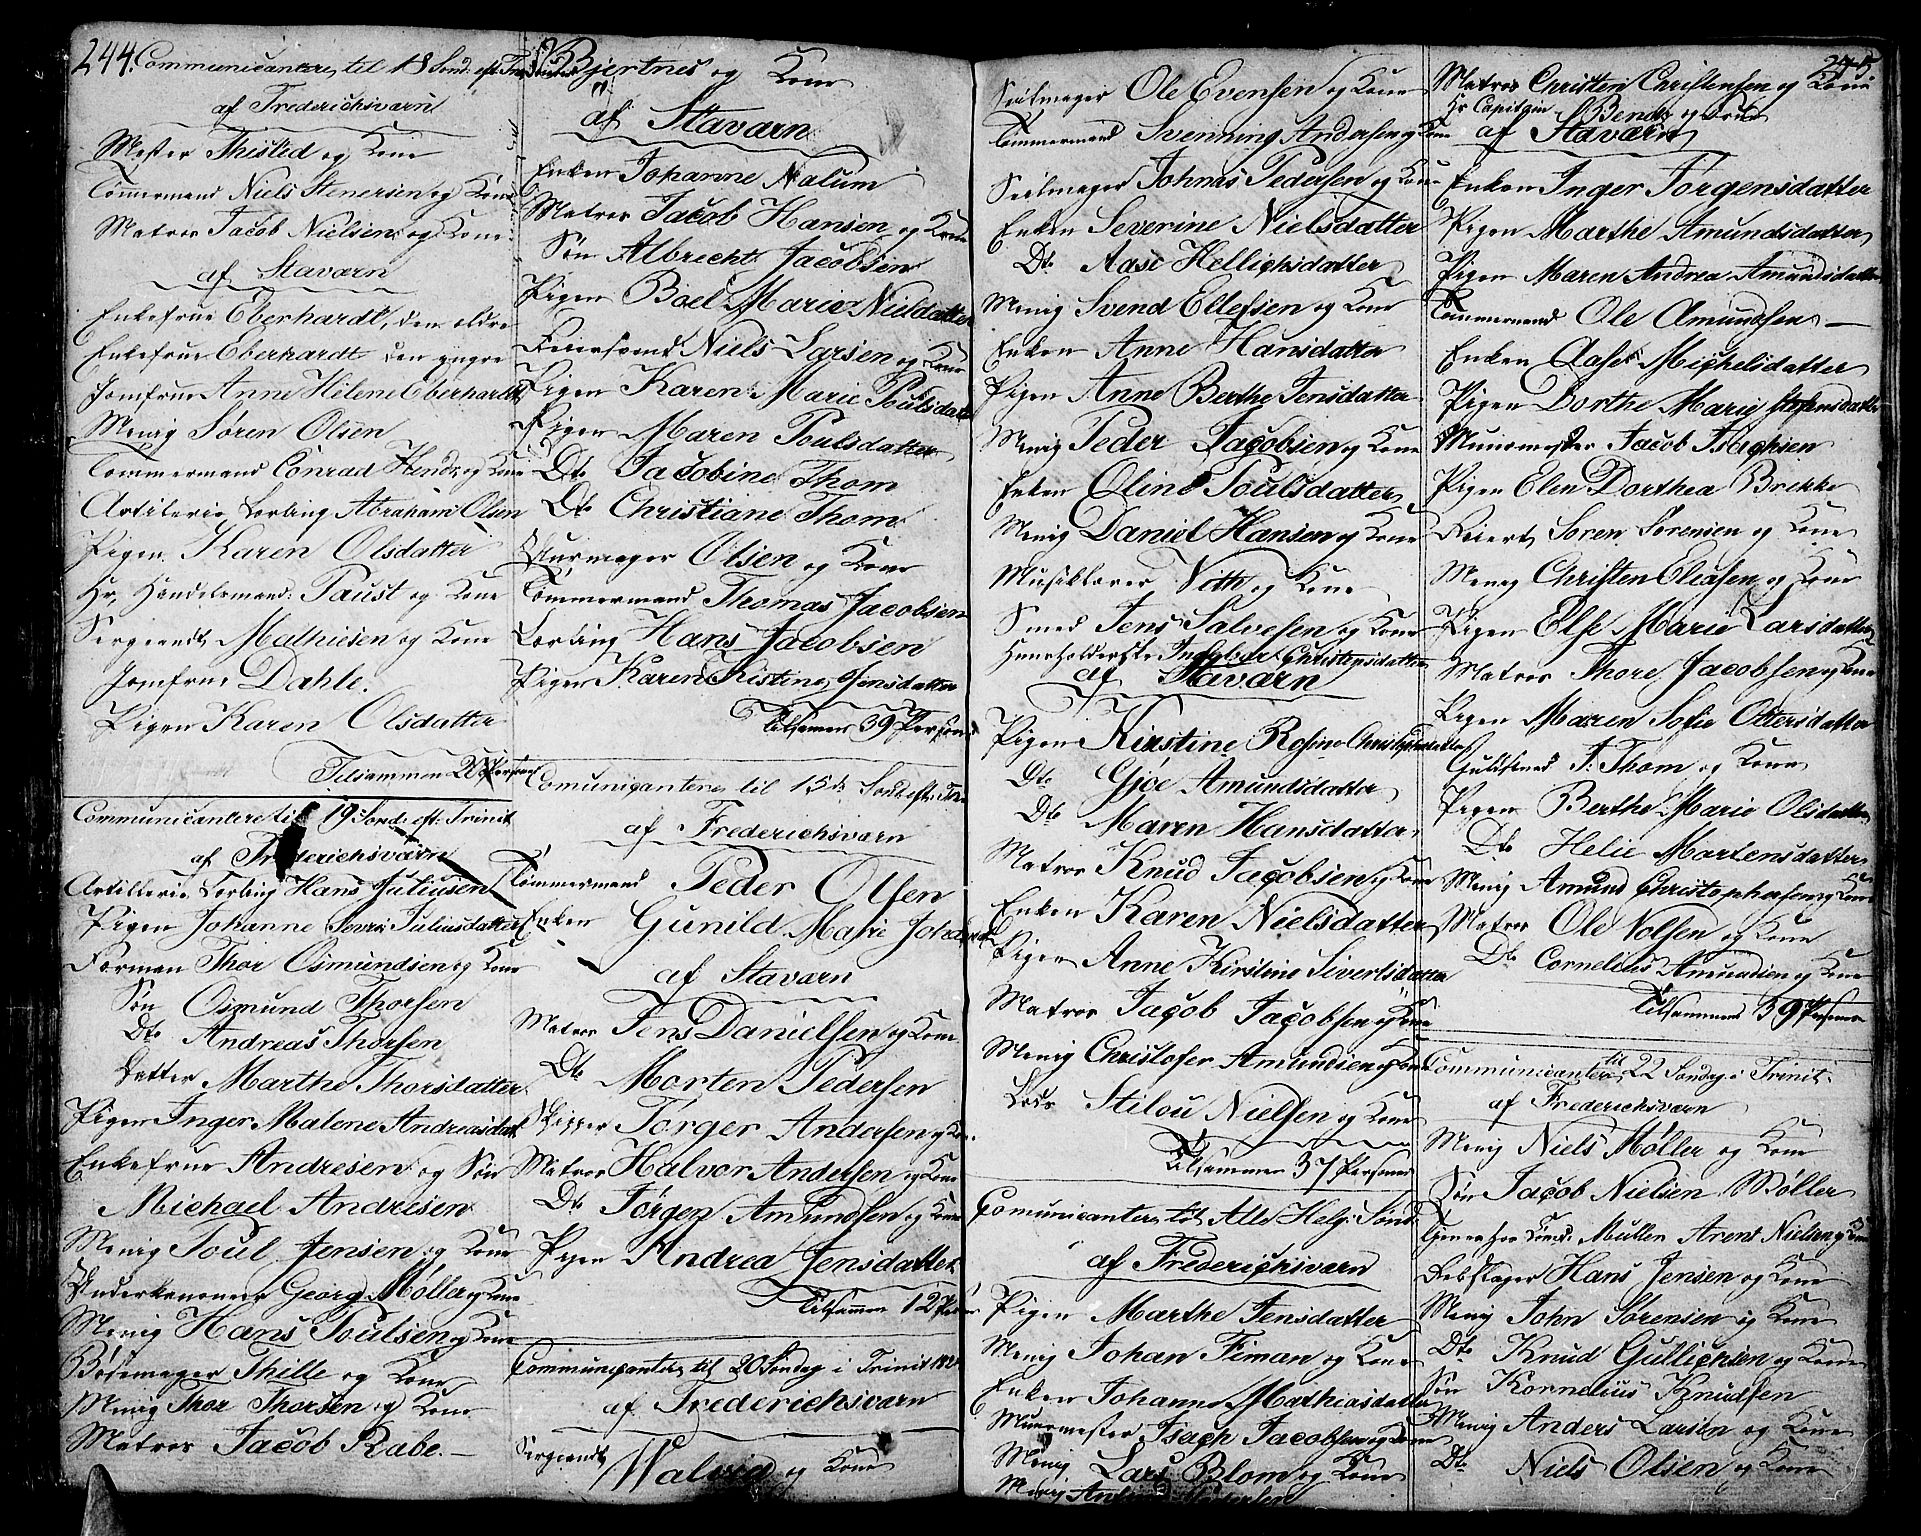 244. Communicantere til 18 Sond. eft. Trinitatis
af Frederichsværn
Mester Thisted og Kone
Tömmermand Niels Stenersen og Kone
Matros Jacob Nielsen og Kone
af Stavarn
Enkefrue Eberhardt, den ældre
Enkefrue Eberhardt den yngre
Jomfrue Anne Hilene Eberhardt
Menig Søren Olsen
Tömmermand Conrad Hendr: og Kone
Artilerie Lærling Abraham Olsen
Pigen Karen Olsdatter
Hr. Handelsmand Paust og Kone
Sergeandt Mathiesen og Kone
Jomfrue Dahle.
Pigen Karen Olsdatter
Tilsammen 20 Personer
Communicantere til 19 Sond: eft: Trinit
af Frederichsværn
Artillerie Lærling Hans Juliusen
Pigen Johanne Sevri: Juliusdatter
Forman Thor Osmundsen og Kone
Sön Osmund Thorsen
Dto Andreas Thorsen
Datter Marthe Thorsdatter
Pigen Inger Malene Andreasdat
Enkefrue Andresen og Sön
Michael Andresen
Menig Poul Jensen og Kone
Underkanoneer Georg Møller og Kone
Menig Hans Poulsen og Kone
Bösemager Thille og Kone
Menig Thor Thorsen og Kone
Matros Jacob Rabe.
Bjertnes og Kone
af Stavarn
Enken Johanne Nalum
Matros Jacob Hansen og Kone
Sön Albrecht Jacobsen
Pigen Boel Marie Nielsdatter
Feiersvend Niels Larsen og Kone
Pigen Karen Marie Poulsdatter
Pigen Maren Poulsdatter
Dto Jacobine Thom
Dto Christiane Thom
Uurmager Olsen og Kone
Tömmermand Thomas Jacobsen
Lærling Hans Jacobsen
Pigen Karen Kistine Jensdatter
Tilsamen 39 Personer
Comunicantere til 15de Sond eft: Trin
af Frederichsvarn
Tömmermand Peder Olsen
Enken Gunild Marie Johansd
af Stavarn
Matros Jens Danielsen og Kone
Dto Morten Pedersen
Skipper Jørger Andersen og Kone
Matros Halvor Andersen og Kone
Dto Jørgen Amundsen og Kone
Pigen Andrea Jensdatter
Tilsamen 12 Personer
Communicantere til 20 Sondag i Trinit
af Frederichsværn
Sergeandt Walvig og Kone
245.
Seilmager Ole Evensen og Kone
Tömmermand Svenning Andersen og Kone
Seilmager Johnas Pedersen og Kone
Enken Severine Nielsdatter
Dto Aase Hellichsdatter
Menig Svend Ellefsen og Kone
Enken Anne Hansdatter
Pigen Anne Berthe Jensdatter
Menig Peder Jacobsen og Kone
Enken Oline Poulsdatter
Menig Daniel Hansen og Kone
Musiklærer Vith og Kone
Smed Jens Salvesen og Kone
Huusholderske Ingebor Christensdatter
af Stavarn
Pigen Kirstine Rosine Christophersdatter
Dto Gjøe Amundsdatter
Dto Maren Hansdatter
Matros Knud Jacobsen og Kone
Enken Karen Nielsdatter
Pigen Anne Kirstine Sivertsdatter
Matros Jacob Jacobsen og Kone
Menig Christofer Amundsen og Kone
Lods Stilou Nielsen og Kone
Tilsammen 37 Personer
Comunicantere til Alle Helg: Sönd
af Frederichsværn
Pigen Marthe Jensdatter
Menig Johan Fiman og Kone
Enken Johanne Mathiasdatter
Muurmester Isach Jacobsen og Kone
Menig Lars Blom og Kone
Menig
Matros Christen Christensen og Kone
Hr Capitain Bendz og Frue
af Staværn
Enken Inger Jörgensdatter
Pigen Marthe Amundsdatter
Pigen Maren Andrea Amundsdatter
Tömmermand Ole Amundsen
Enken Aase Michelsdatter
Pigen Dorthe Marie
Muurmester Jacob Isachsen
Pigen Elen Dorthea Brikke
Feiert Soren Sørensen og Kone
Menig Christen Eliasen og Kone
Pigen Else Marie Larsdatter
Matros Thore Jacobsen og Kone
Pigen Maren Sofie Ottersdatter
Guldsmed J: Thom og Kone
Pigen Berthe Marie Olsdatter
Dto Helie Mortensdatter
Menig Amund Christophersen og Kone
Matros Ole Nolsen og Kone
Dto Cornelius Amundsen og Kone
Tilsammen 39 Personer
Communicantere til 22 Sondag i Trinit.
af Frederichsvarn
Menig Niels Møller og Kone
Sön Jacob Nielsen Møller
Müller Arent Nielsen og Kone
Rebslager Hans Jensen og Kone
Menig John Sørensen og Kone
Dto Knud Gullichsen og Kone
Sön Kornelius Knudsen
Menig Anders Larsen og Kone
Dto Niels Olsen og Kone